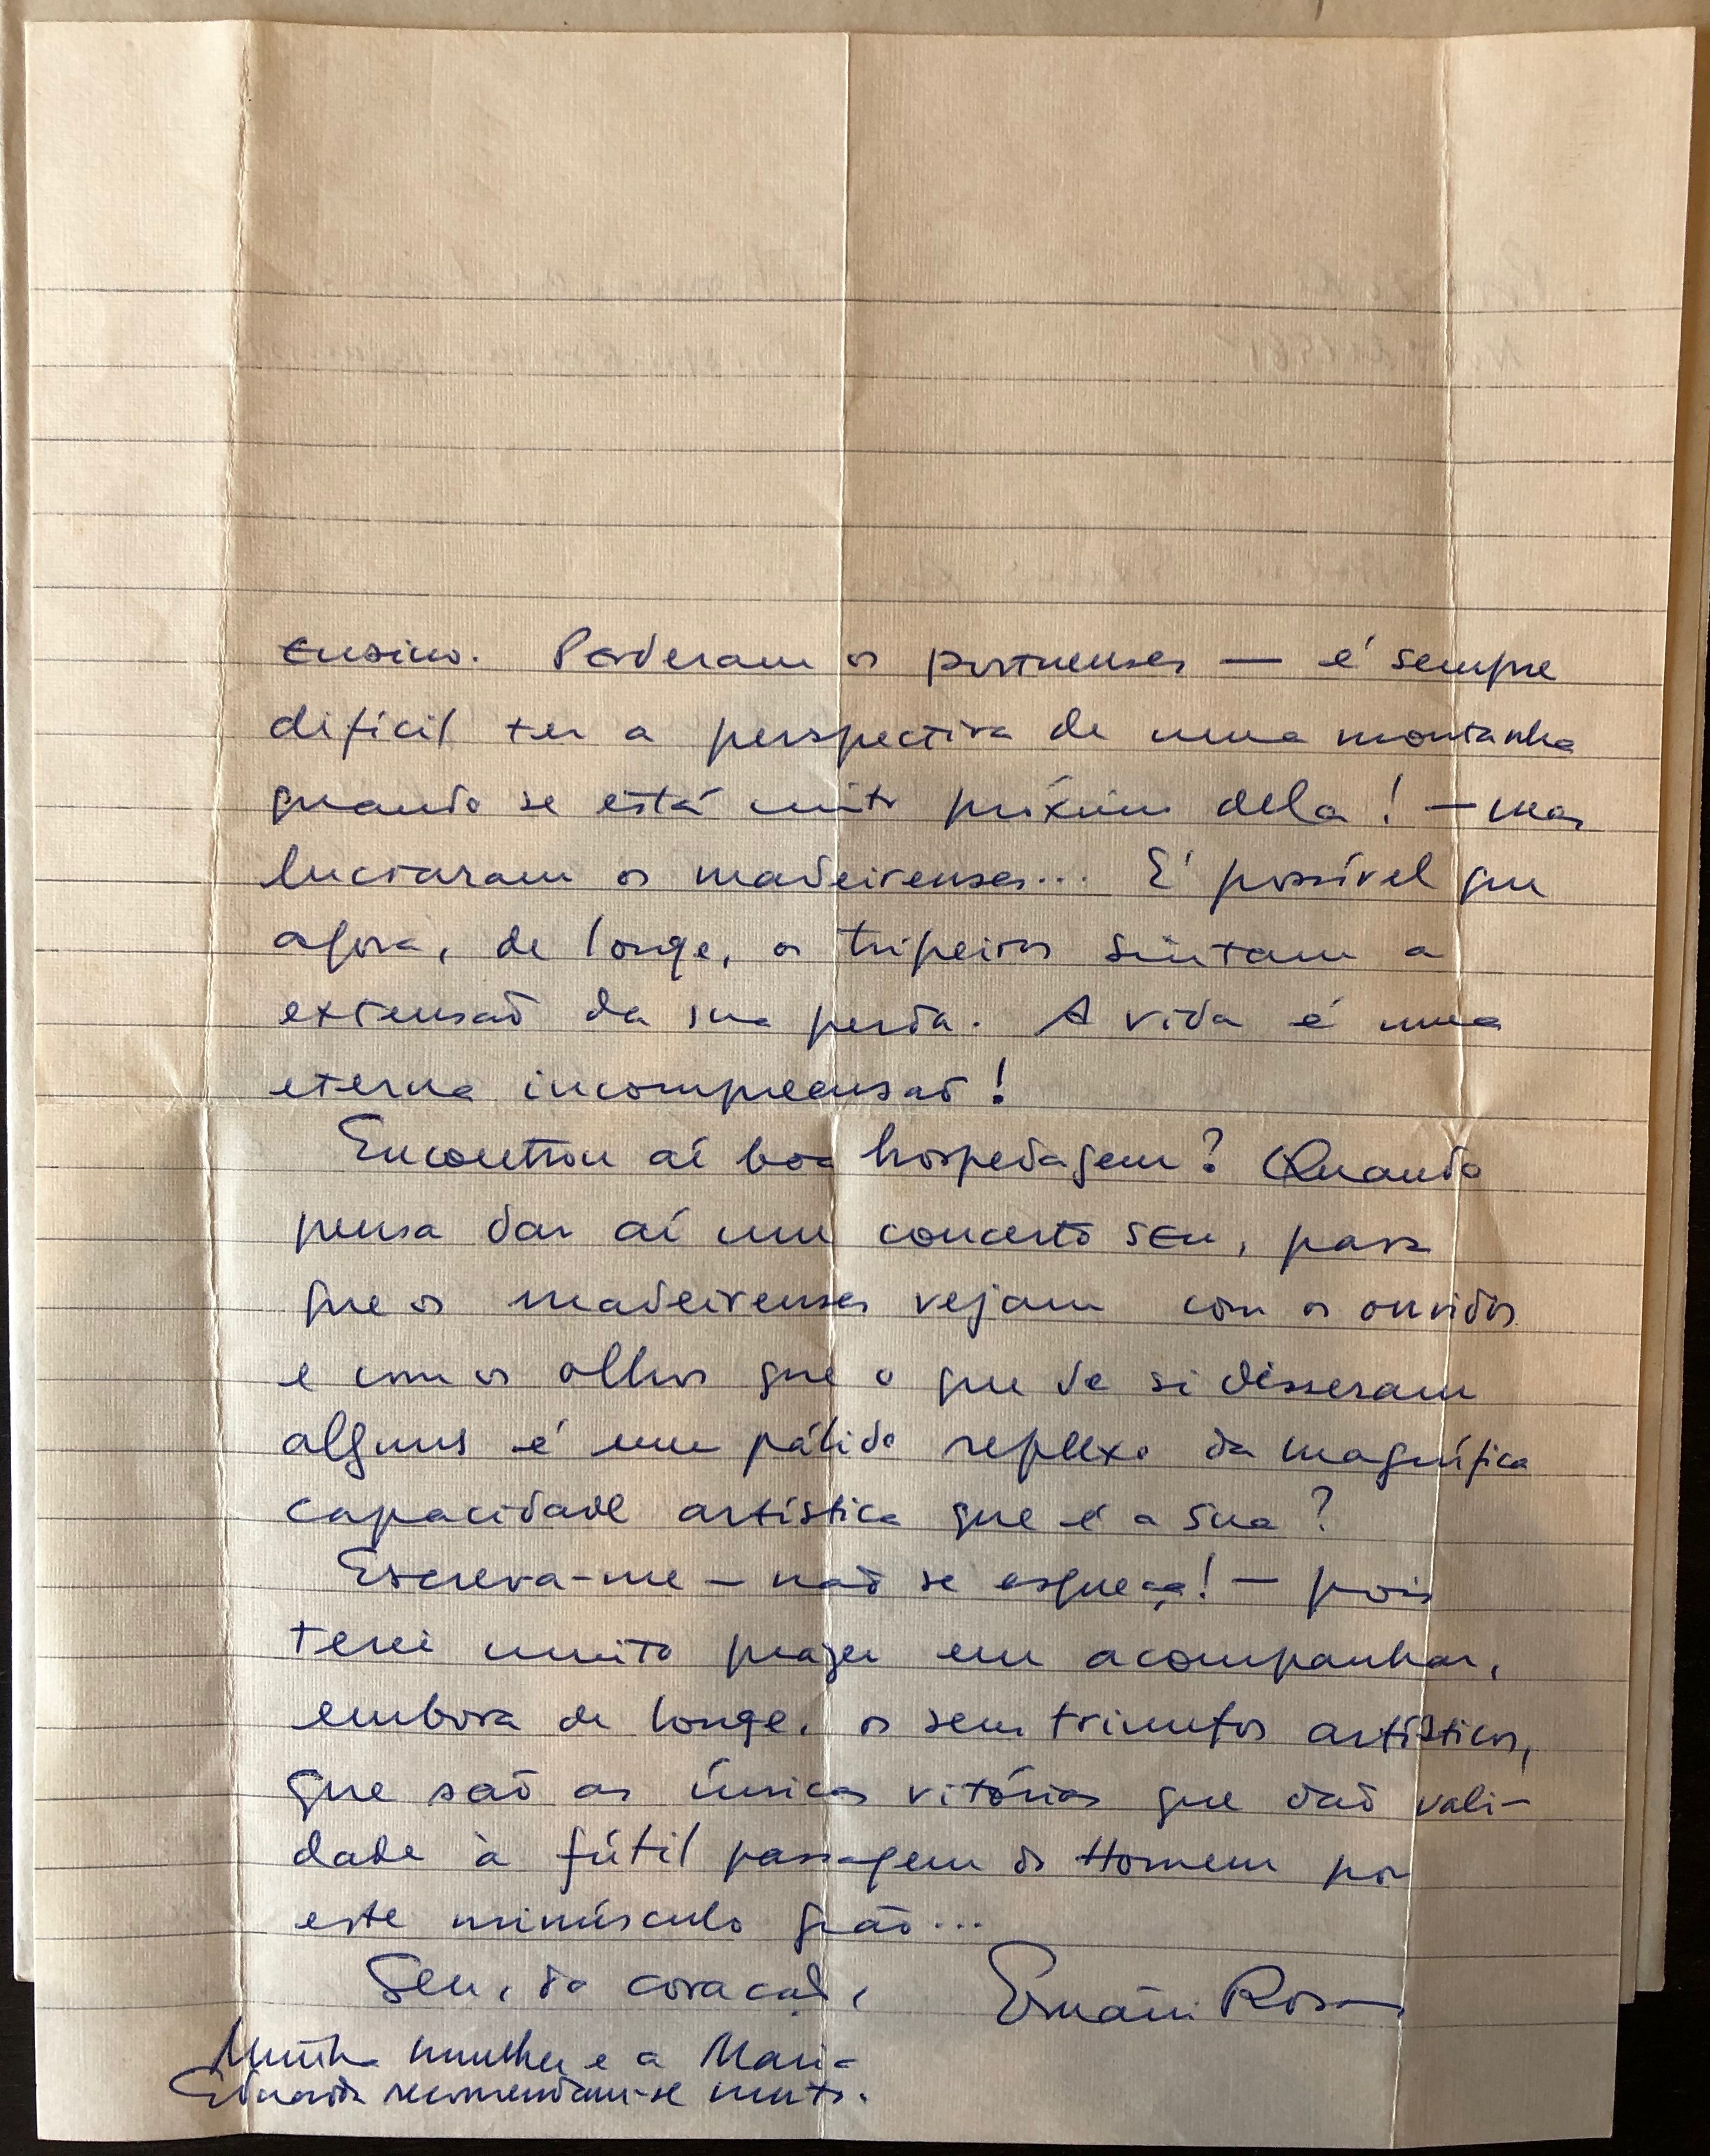 ensino. Perderam os portuenses — é sempre
difícil ter a perspectiva de uma montanha
quando se está muito próximo dela! — mas
lucraram os madeirenses... É possível que
agora, de longe, os tripeiros sintam a
extensão da sua perda. A vida é uma
eterna incompreensão!
Encontrou aí boa hospedagem? Quando
pensa dar aí um concerto seu, para
que os madeirenses vejam com os ouvidos
e com os olhos que o que de si disseram
alguns é um pálido reflexo da magnífica
capacidade artística que é a sua?
Escreva-me — não se esqueça! — pois
terei muito prazer em acompanhar,
embora de longe, os seus triunfos artísticos,
que são as únicas vitórias que dão vali-
dade à fútil passagem do Homem por
este minúsculo grão...
Seu, do coração,
Ernâni Rosas
Minha mulher e a Maria
Eduarda recomendam-se muito.